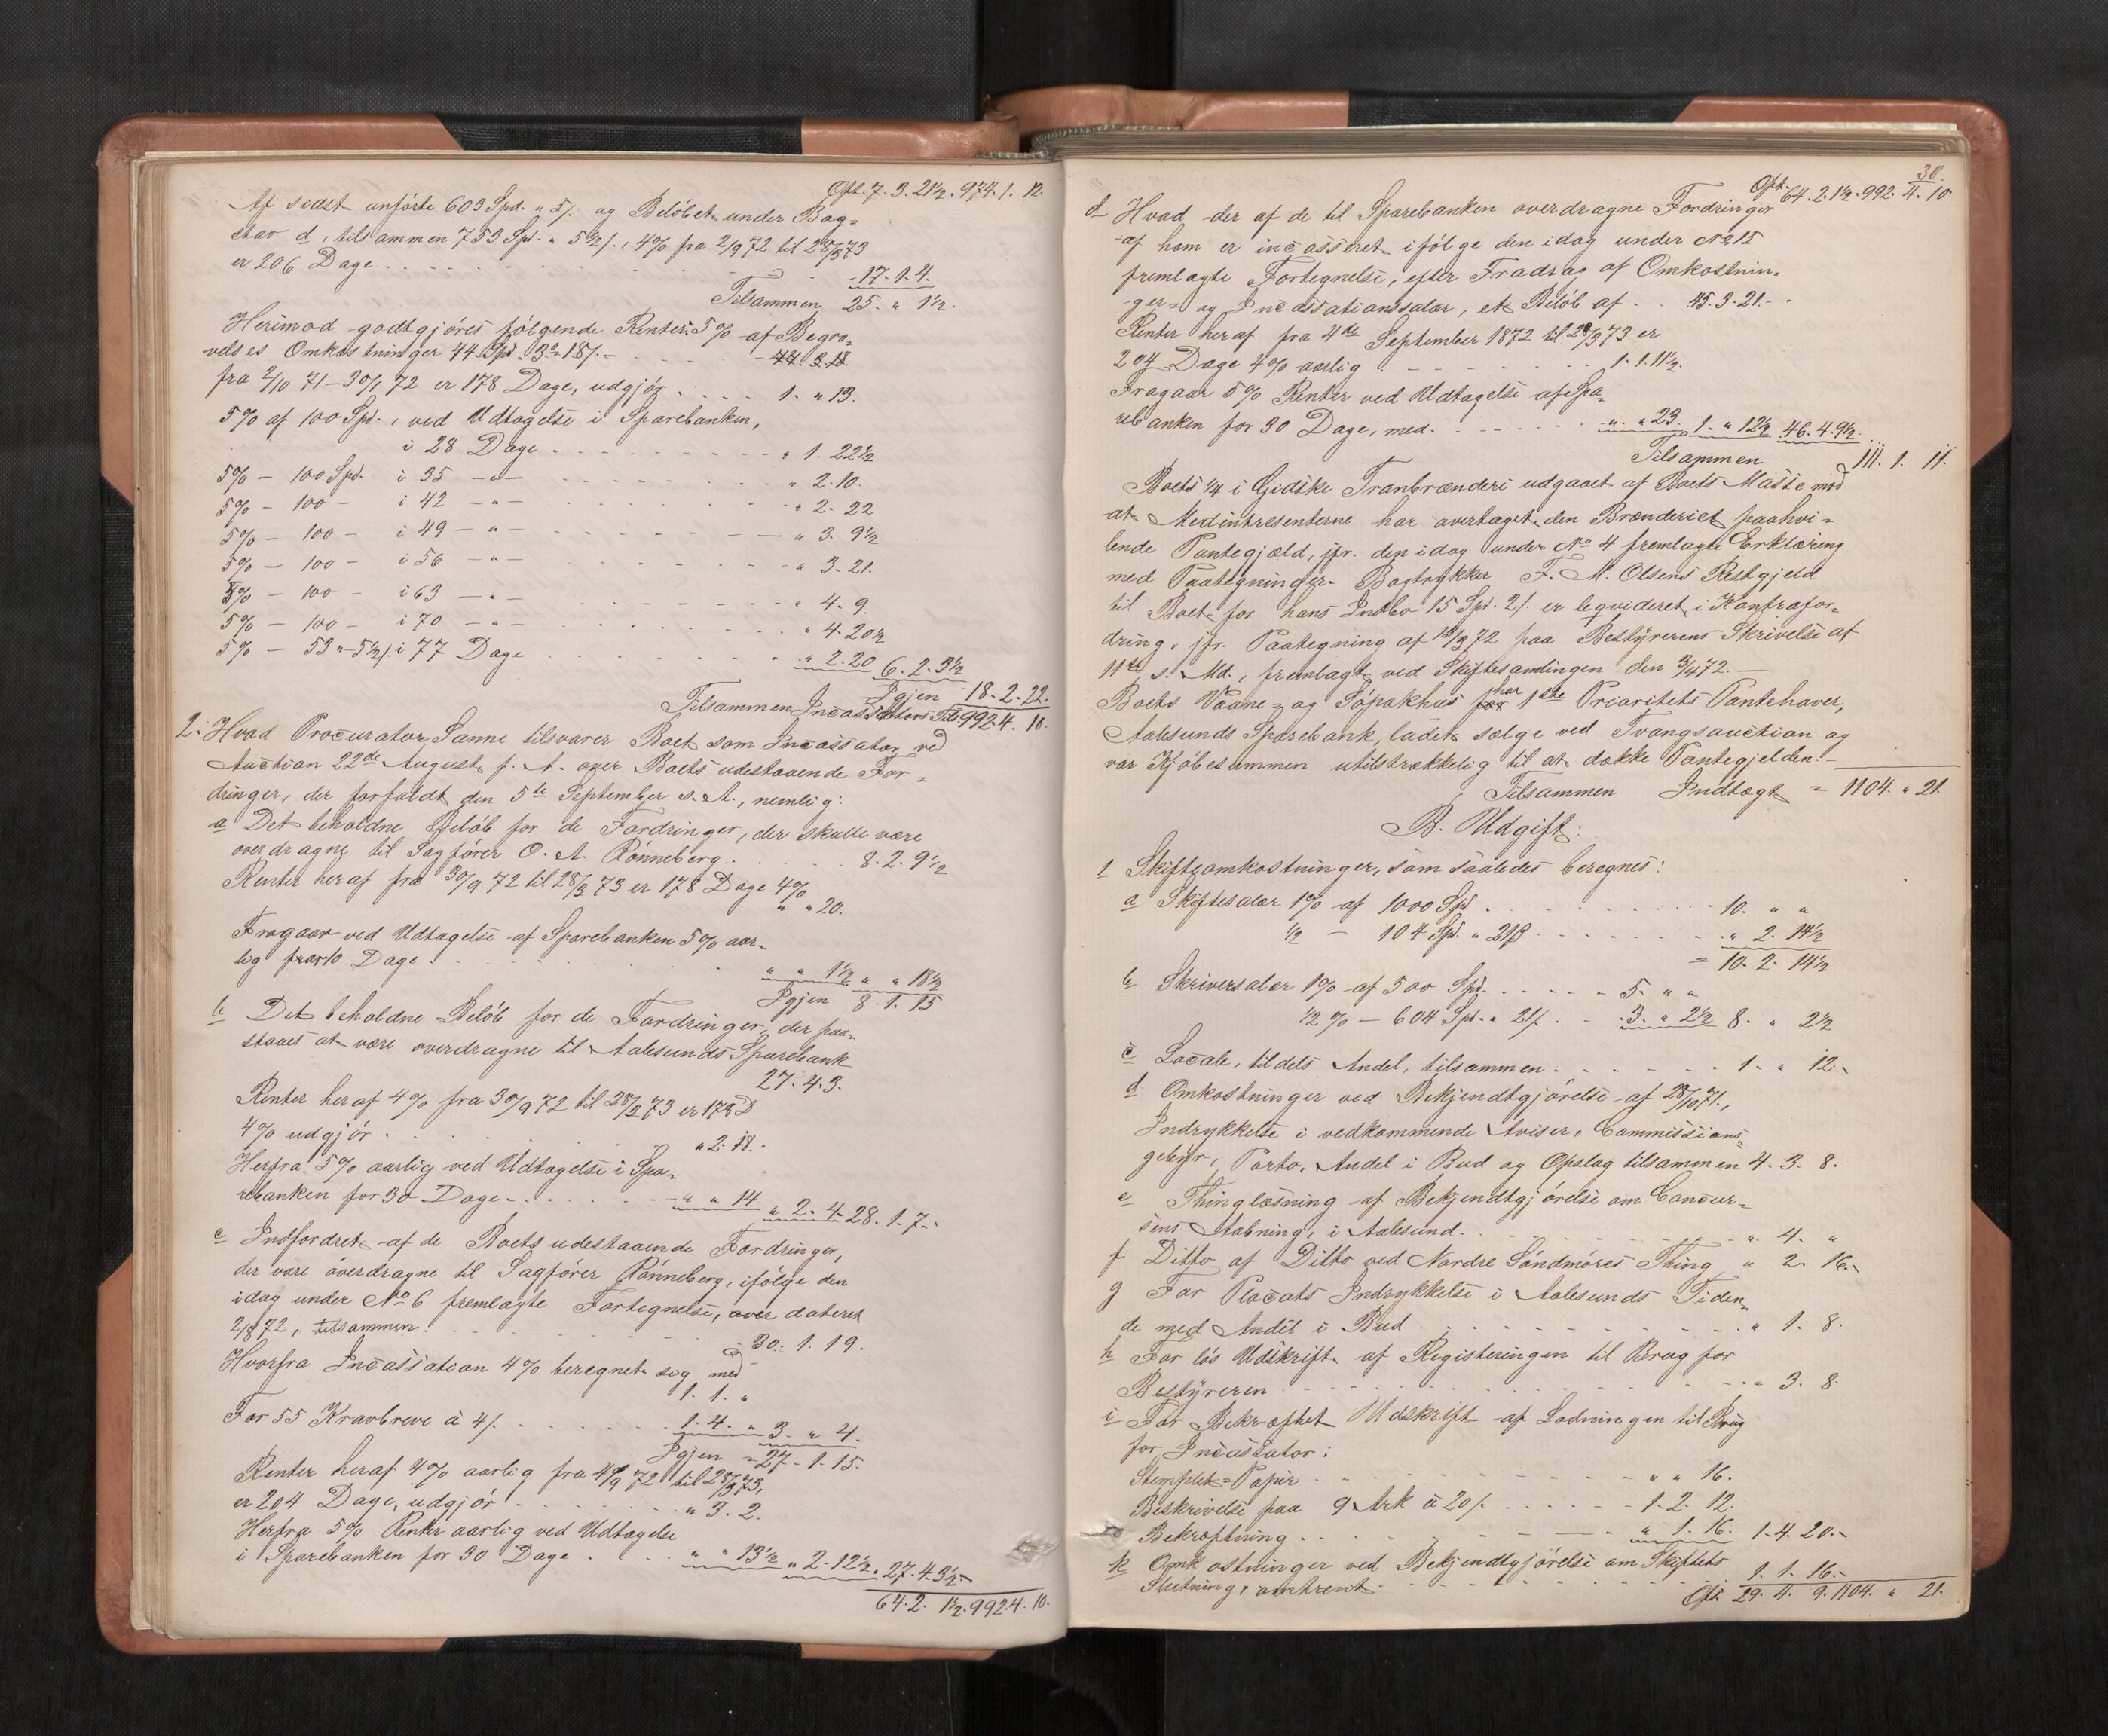 Opf. 7. 3. 21½. 974. 1. 12.
Af sidst anførte 603 Spd. " 5/. og Beløbet under Bog=
stav d, tilsammen 753 Spd. " 5½/., 4% fra 2/9 72 til 28/3 73
er 206 Dage . . . 17. 1. 4.
Tilsammen 25. " 1½.
Herimod godtgjøres følgende Renter: 5% af Begra=
velses Omkostninger 44 Spd. 3 18/. — 44. 3. 18.
fra 2/10 71 – 30/1 72 er 178 Dage, udgjør . . . 1. " 13.
5% af 100 Spd., ved Udtagelse i Sparebanken,
i 28 Dage . . . " 1. 22½
5% — 100 Spd. i 35 — " — . . . " 2. 10.
5% — 100 — i 42 — " — . . . " 2. 22
5% — 100 — i 49 — " — . . . " 3. 9½
5% — 100 — i 56 — " — . . . " 3. 21.
5% — 100 — i 63 — " — . . . " 4. 9.
5% — 100 — i 70 — " — . . . " 4. 20½
5% — 53 " 5½/. i 77 Dage . . . " 2. 20 6. 2. 3½
Igjen 18. 2. 22.
Tilsammen Incassators Tils. 992. 4. 10.
2. Hvad Procurator Sanne tilsvarer Boet som Incassator ved
Auction 22de August f. A. over Boets udestaaende For=
dringer, der forfaldt den 5te September s. A., nemlig:
a Det beholdne Beløb for de Fordringer, der skulle være
overdragne til Sagfører O. A. Rønneberg . . . 8. 2. 9½
Renter heraf fra 30/9 72 til 28/3 73 er 178 Dage 4%
" " 20.
Fragaar ved Udtagelse af Sparebanken 5% aar=
lig for 10 Dage . . . " " 1½ " " 18½
Igjen 8. 1. 15
b Det beholdne Beløb for de Fordringer, der paa=
staaes at være overdragne til Aalesunds Sparebank
27. 4. 3.
Renter heraf 4% fra 30/9 72 til 28/3 73 er 178 D
4% udgjør . . . " 2. 18.
Herfra 5% aarlig ved Udtagelse i Spa=
rebanken for 30 Dage . . . " " 14 " 2. 4. 28. 1. 7.
c Indfordret af de Boets udestaaende Fordringer,
der vare overdragne til Sagfører Rønneberg, ifølge den
idag under No 6 fremlagte Fortegnelse, over dateret
2/8 72, tilsammen . . . 30. 1. 19.
Hvorfra Incassation 4% beregnet sig med
1. 1. "
For 55 Kravbreve à 4/. . . . 1. 4. " 3. " 4.
Igjen = 27. 1. 15.
Renter heraf 4% aarlig fra 4/9 72 til 28/3 73,
er 204 Dage, udgjør . . . " 3. 2.
Herfra 5% Renter aarlig ved Udtagelse
i Sparebanken for 30 Dage . . . " " 13½ " 2. 12½. 27. 4. 3½.
64. 2. 1½. 992. 4. 10.
30.
Opf. 64. 2. 1½. 992. 4. 10
d Hvad der af de til Sparebanken overdragne Fordringer
af ham er incasseret ifølge den idag under No 15
fremlagte Fortegnelse, efter Fradrag af Omkostnin=
ger og Incassationssalær, et Beløb af . . 45. 3. 21.
Renter heraf fra 4de September 1872 til 28/3 73 er
204 Dage 4% aarlig . . . 1. 1. 11½.
Fragaar 5% Renter ved Udtagelse af Spa=
rebanken for 30 Dage, med . . . " " 23. 1. " 12½ 46. 4. 9½
Tilsammen 111. 1. 11.
Boets ¼ i Gidske Tranbrænderi udgaaet af Boets Masse med
at Medintresenterne har overtaget den Brænderiet paahvi=
lende Pantegjæld, jfr. den idag under No 4 fremlagte Erklæring
med Paategninger. Bogtrykker F. M. Olsens Restgjeld
til Boet for hans Indbo 15 Spd. 2/. er liqvideret i Kontrafor=
dring, jfr. Paategning af 18/3 72 paa Bestyrerens Skrivelse af
11te s. Md., fremlagt ved Skiftesamlingen den 3/4 72. —
Boets Vaane= og Søpakhus har 1ste Prioritets Pantehaver,
Aalesunds Sparebank, ladet sælge ved Tvangsauction og
var Kjøbesummen utilstrækkelig til at dække Pantegjelden. —
Tilsammen Indtægt = 1104. " 21.
B. Udgift:
1 Skifteomkostninger, som saaledes beregnes:
a Skiftesalær 1% af 1000 Spd. . . . 10. " "
½ — 104 Spd. " 21ß . . . " 2. 14½
= 10. 2. 14½
b Skriversalær 1% af 500 Spd. . . . 5. " "
½ % — 604 Spd. " 21/. . . 3. " 2½ 8. " 2½
c Locale, tildels Andel, tilsammen . . . 1. " 12.
d Omkostninger ved Bekjendtgjørelse af 28/10 71.,
Indrykkelse i vedkommende Aviser, Commissions=
gebyr, Porto, Andel i Bud og Opslag tilsammen 4. 3. 8.
e Thinglæsning af Bekjendtgjørelse om Concur=
sens Aabning, i Aalesund . . . " 4. "
f Ditto af Ditto ved Nordre Søndmøres Thing " 2. 16.
g For Placats Indrykkelse i Aalesunds Tiden=
de med Andel i Bud . . . " 1. 8.
h For løs Udskrift af Registeringen til Brug for
Bestyreren . . . " 3. 8.
i For Bekræftet Udskrift af Lodningen til Brug
for Incassator:
Stemplet=Papir . . . " " 16.
Beskrivelse paa 9 Ark à 20/. . . . 1. 2. 12.
Bekræftning . . . " 1. 16. 1. 4. 20.
k Omkostninger ved Bekjendtgjørelse om Skiftets
Slutning, omtrent . . . 1. 1. 16.
Opf. 29. 4. 9. 1104. " 21.